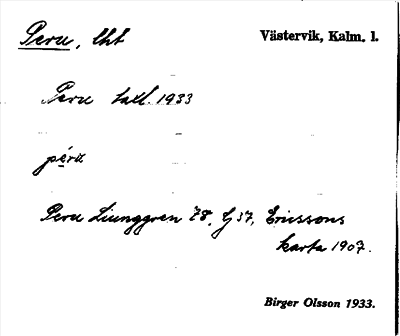 Peru, lht Västervik, Kalm. l.
Peru taxl. 1933
péru
Peru Ljunggren 78, G 37, Ericssons
karta 1907.
Birger Olsson 1933.